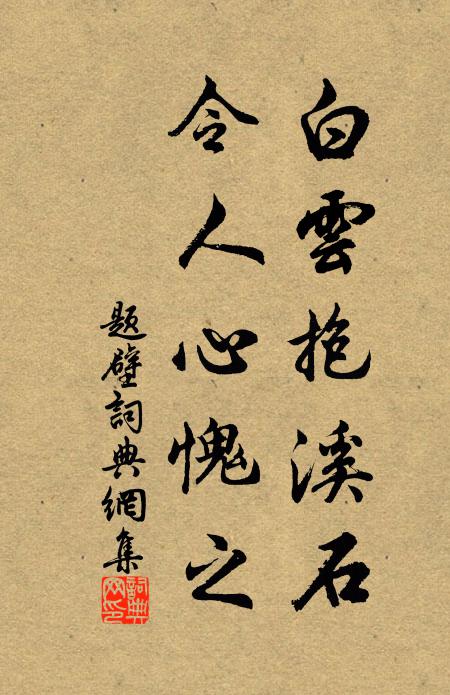 白雲抱溪石
令人心愧之
題壁詞典網集
詞典网印